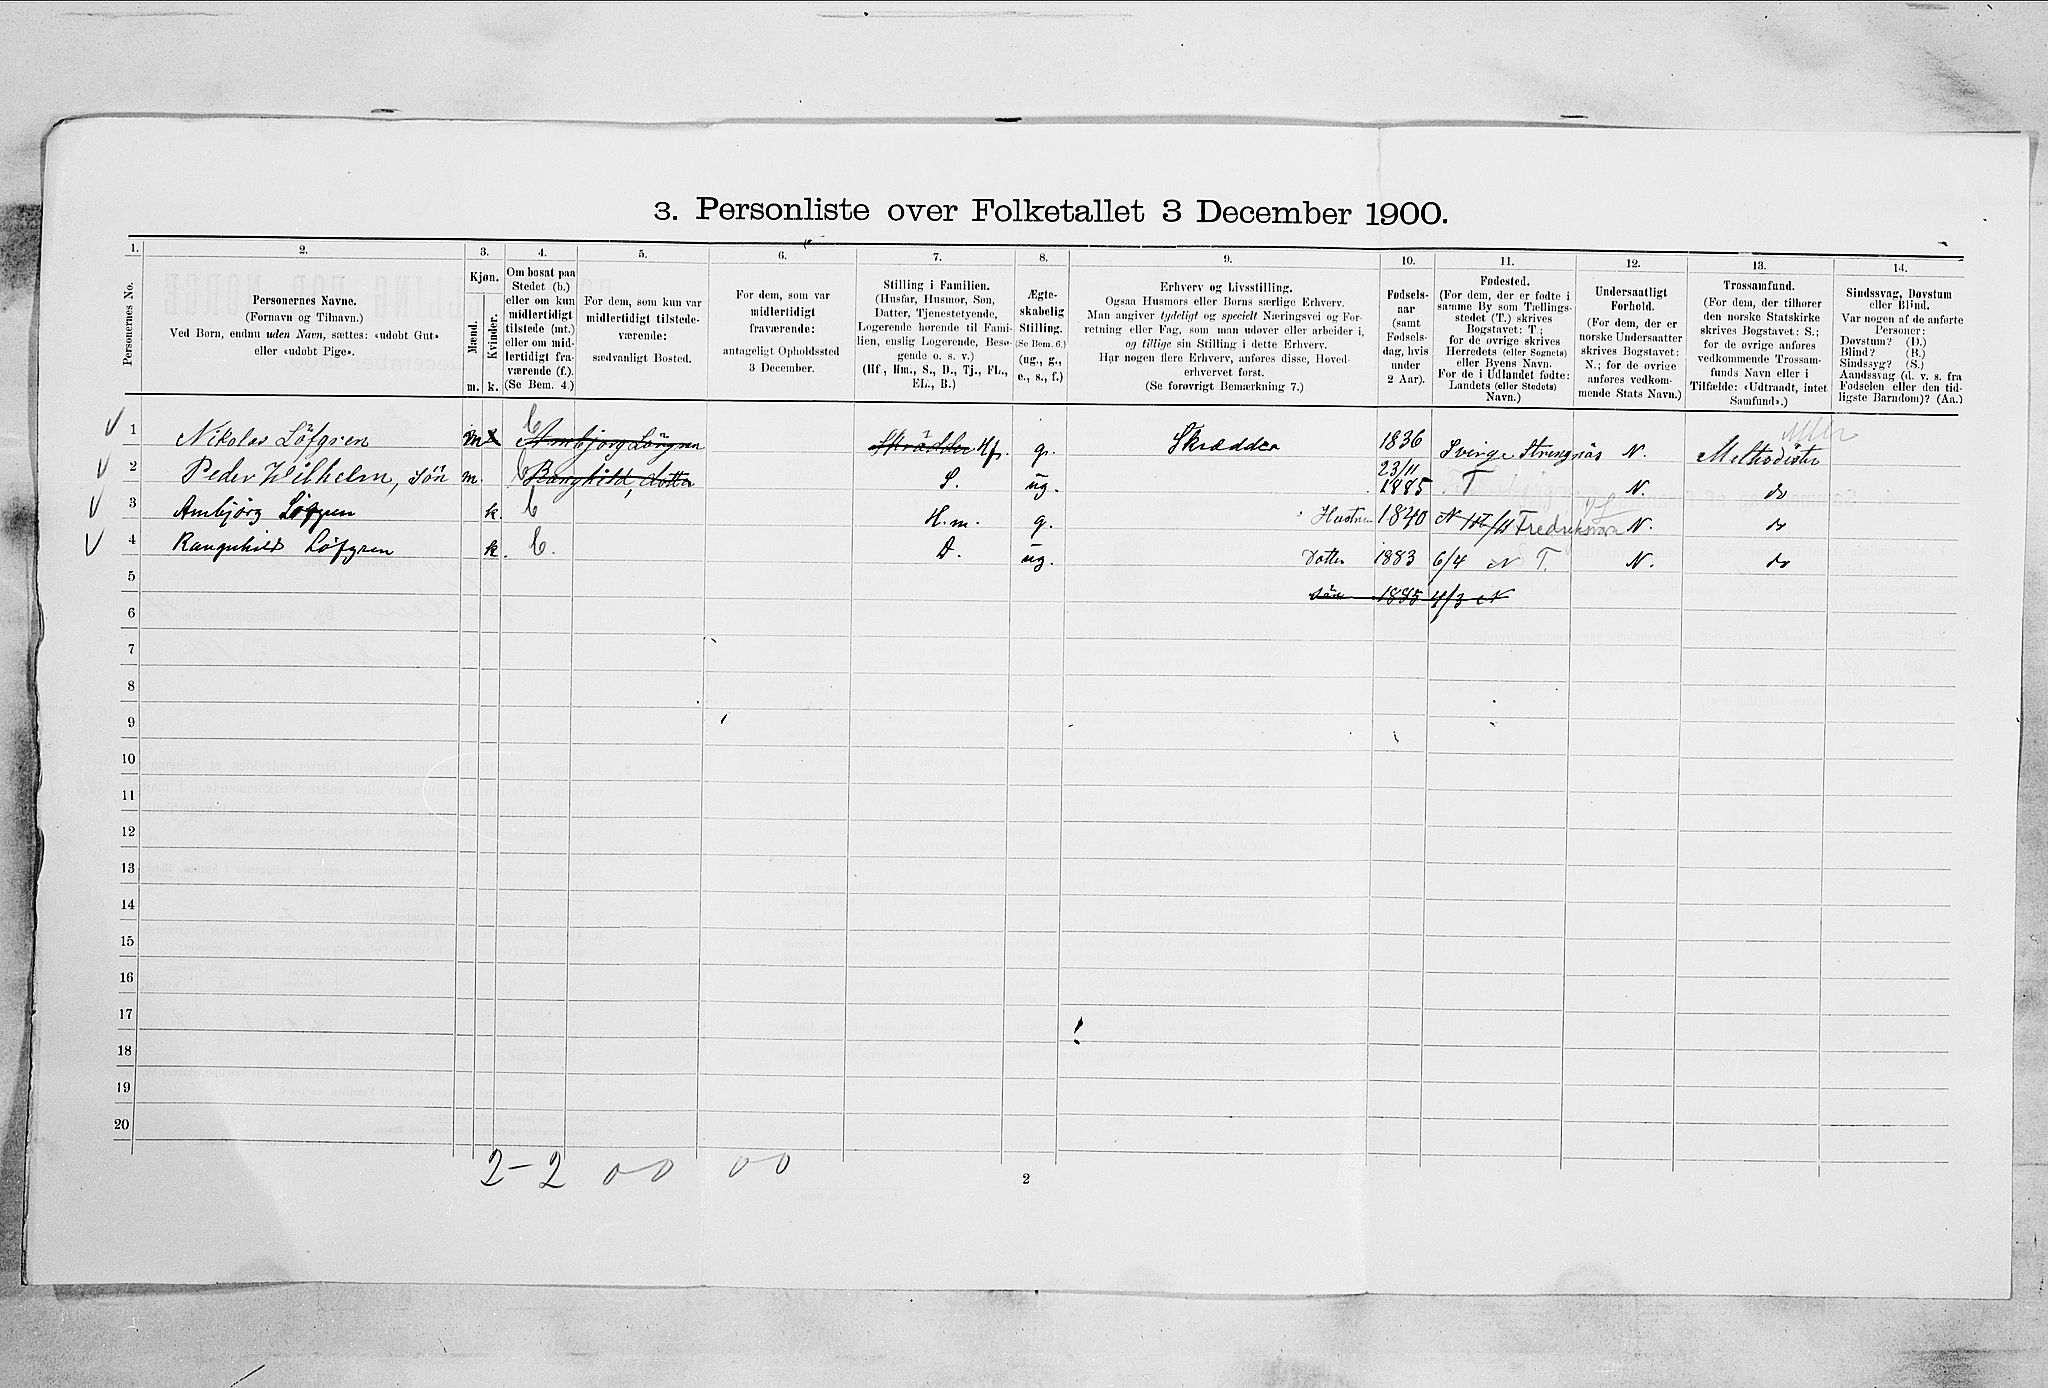 3. Personliste over Folketallet 3 December 1900.
1. 2. 3. 4. 5. 6. 7. 8. 9. 10. 11. 12. 13. 14.
Personernes No.
Personernes Navne.
(Fornavn og Tilnavn.)
Ved Børn, endnu uden Navn, sættes: «udøbt Gut»
eller «udøbt Pige».
Kjøn.
Mænd.
Kvinder.
m. k.
Om bosat paa
Stedet (b.)
eller om kun
midlertidigt
tilstede (mt.)
eller om mid-
lertidigt fra-
værende (f.)
(Se Bem. 4.)
For dem, som kun var
midlertidigt tilstede-
værende:
sædvanligt Bosted.
For dem, som var
midlertidigt
fraværende:
antageligt Opholdssted
3 December.
Stilling i Familien.
(Husfar, Husmor, Søn,
Datter, Tjenestetyende,
Logerende hørende til Fami-
lien, enslig Logerende, Besø-
gende o. s. v.)
(Hf, Hm., S., D., Tj., FL.,
EL., B.)
Ægte-
skabelig
Stilling.
(Se Bem. 6.)
(ug., g.,
e., s., f.)
Erhverv og Livsstilling.
Ogsaa Husmors eller Børns særlige Erhverv.
Man angiver tydeligt og specielt Næringsvei og For-
retning eller Fag, som man udøver eller arbeider i,
og tillige sin Stilling i dette Erhverv.
Har nogen flere Erhverv, anføres disse, Hoved-
erhvervet først.
(Se forøvrigt Bemærkning 7.)
Fødsels-
aar
(samt
Fødsels-
dag, hvis
under
2 Aar).
Fødested.
(For dem, der er fødte i
samme By som Tællings-
stedet (T.) skrives
Bogstavet: T.;
for de øvrige skrives
Herredets (eller Sognets)
eller Byens Navn.
For de i Udlandet fødte:
Landets (eller Stedets)
Navn.)
Undersaatligt
Forhold.
(For dem, der er
norske Undersaatter
skrives Bogstavet:
N.; for de øvrige
anføres vedkom-
mende Stats Navn.)
Trossamfund.
(For dem, der tilhører
den norske Statskirke
skrives Bogstavet: S.;
for de øvrige anføres
vedkommende Trossam-
funds Navn eller i
Tilfælde: «Udtraadt, intet
Samfund».)
Sindssvag, Døvstum
eller Blind.
Var nogen af de anførte
Personer:
Døvstum? (D.)
Blind? (B.)
Sindssyg? (S.)
Aandssvag (d. v. s. fra
Fødselen eller den tid-
ligste Barndom)? (Aa.)
1 Nikolas Löfgren m Ambjörg Löfgren Skrädder Hf. g. Skrædder 1836 Sverige Strengnäs N. Methodister
2 Peder Wilhelm, Sön m. Ranghild, dotter S. ug. 23/11 1885 T N. do
3 Ambjörg Löfgren k. H.m. g. Hustru 1840 Fredriksvær N. do
4 Rangnhild Löfgren k. D. ug. Dotter 1883 6/4 N T. N. do
5 sön 1885 4/3 N
6
7
8
9
10
11
12
13
14
15
16
17
18
19
20
2-2 0 0 0 0
2